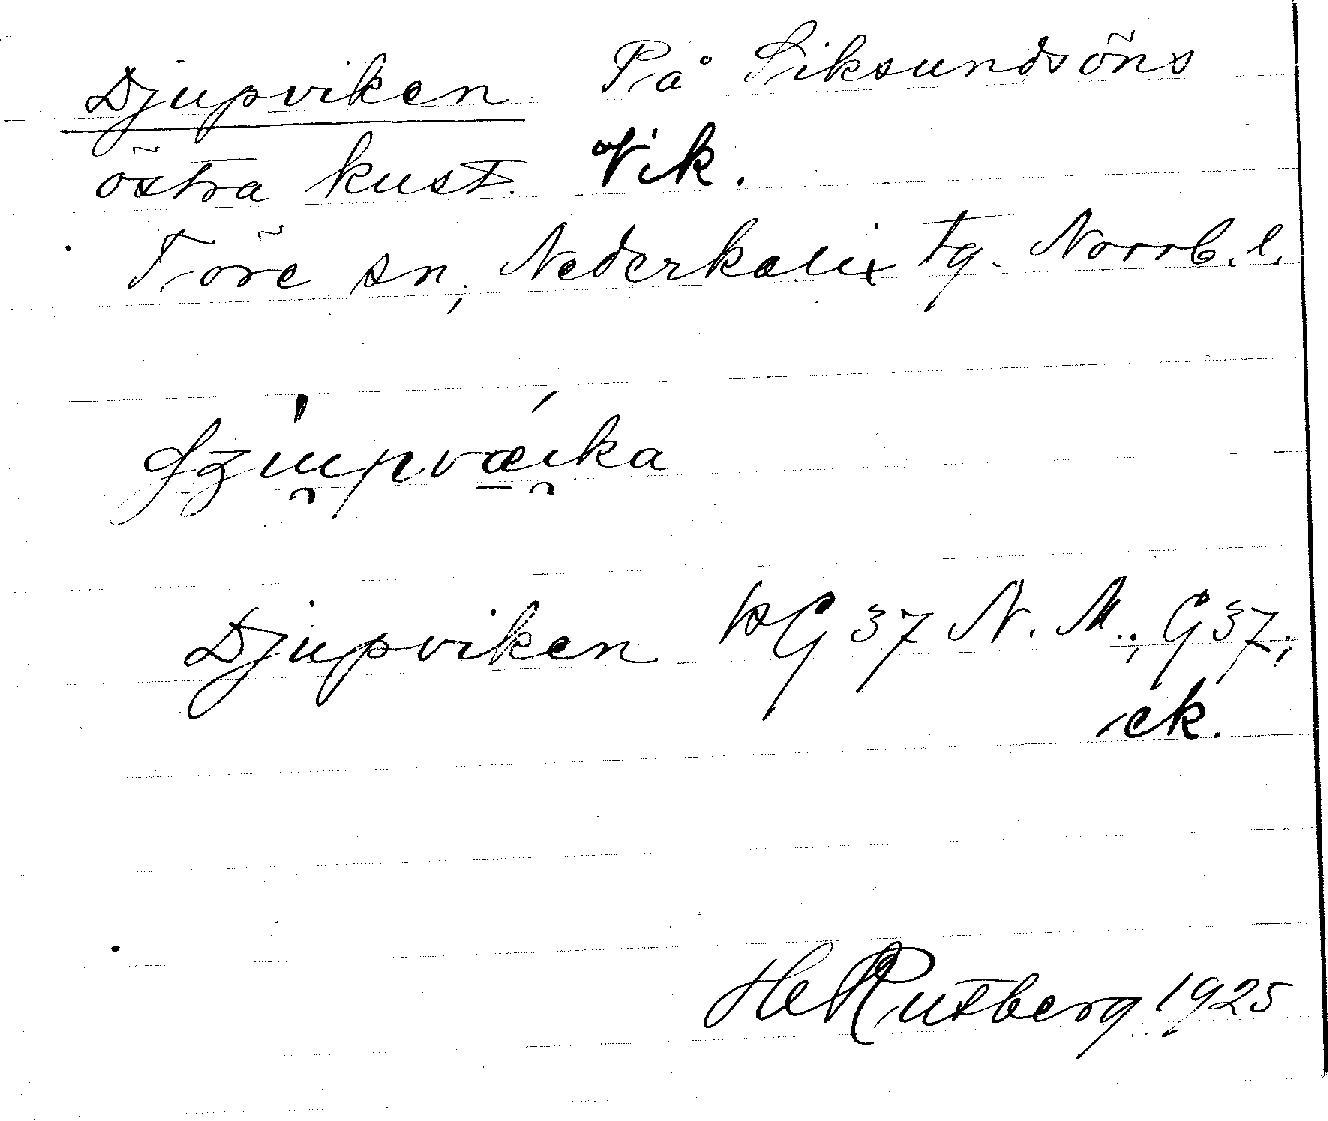 Djupviken På Siksundsöns
östra kust. Vik.
Töre sn, Nederkalix tg. Norrb. l.
Djupviken KG 37 N. M., G 37,
ek.
H Rutberg 1925